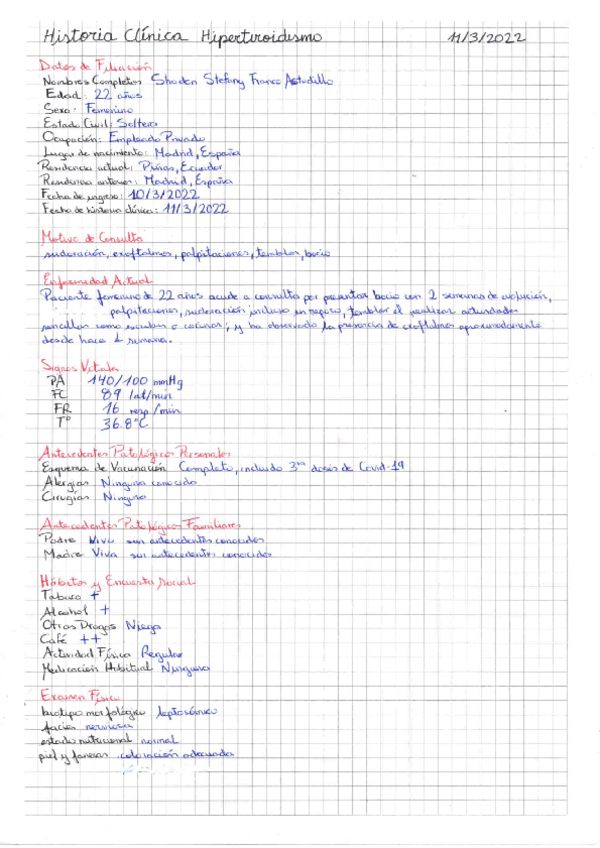 Historia Clínica Hipertiroidismo 11/3/2022
Datos de Filiación
Nombres Completos Shaden Stefany Franco Astudillo
Edad: 22 años
Sexo: Femenino
Estado Civil: Soltera
Ocupación: Empleado Privado
Lugar de nacimiento: Madrid, España
Residencia actual: Piñas, Ecuador
Residencia anterior: Madrid, España
Fecha de ingreso: 10/3/2022
Fecha de historia clínica: 11/3/2022
Motivo de Consulta
sudoración, exoftalmos, palpitaciones, temblor, bocio
Enfermedad Actual
Paciente femenino de 22 años acude a consulta por presentar bocio con 2 semanas de evolución,
palpitaciones, sudoración incluso en reposo, temblor al realizar actividades
sencillas como escribir o cocinar; y ha observado la presencia de exoftalmos aproximadamente
desde hace 1 semana.
Signos Vitales
PA 140/100 mmHg
FC 89 lat/min
FR 16 resp/min
T° 36.8°C
Antecedentes Patológicos Personales
Esquema de Vacunación Completo, incluido 3ra dosis de Covid-19
Alergias Ninguna conocida
Cirugías Ninguna
Antecedentes Patológicos Familiares
Padre Vivo sin antecedentes conocidos
Madre Viva sin antecedentes conocidos
Hábitos y Encuesta Social
Tabaco +
Alcohol +
Otras Drogas Niega
Café ++
Actividad Física Regular
Medicación Habitual Ninguna
Examen Físico
biotipo morfológico leptosómico
facies nerviosa
estado nutricional normal
piel y faneras coloración adecuada